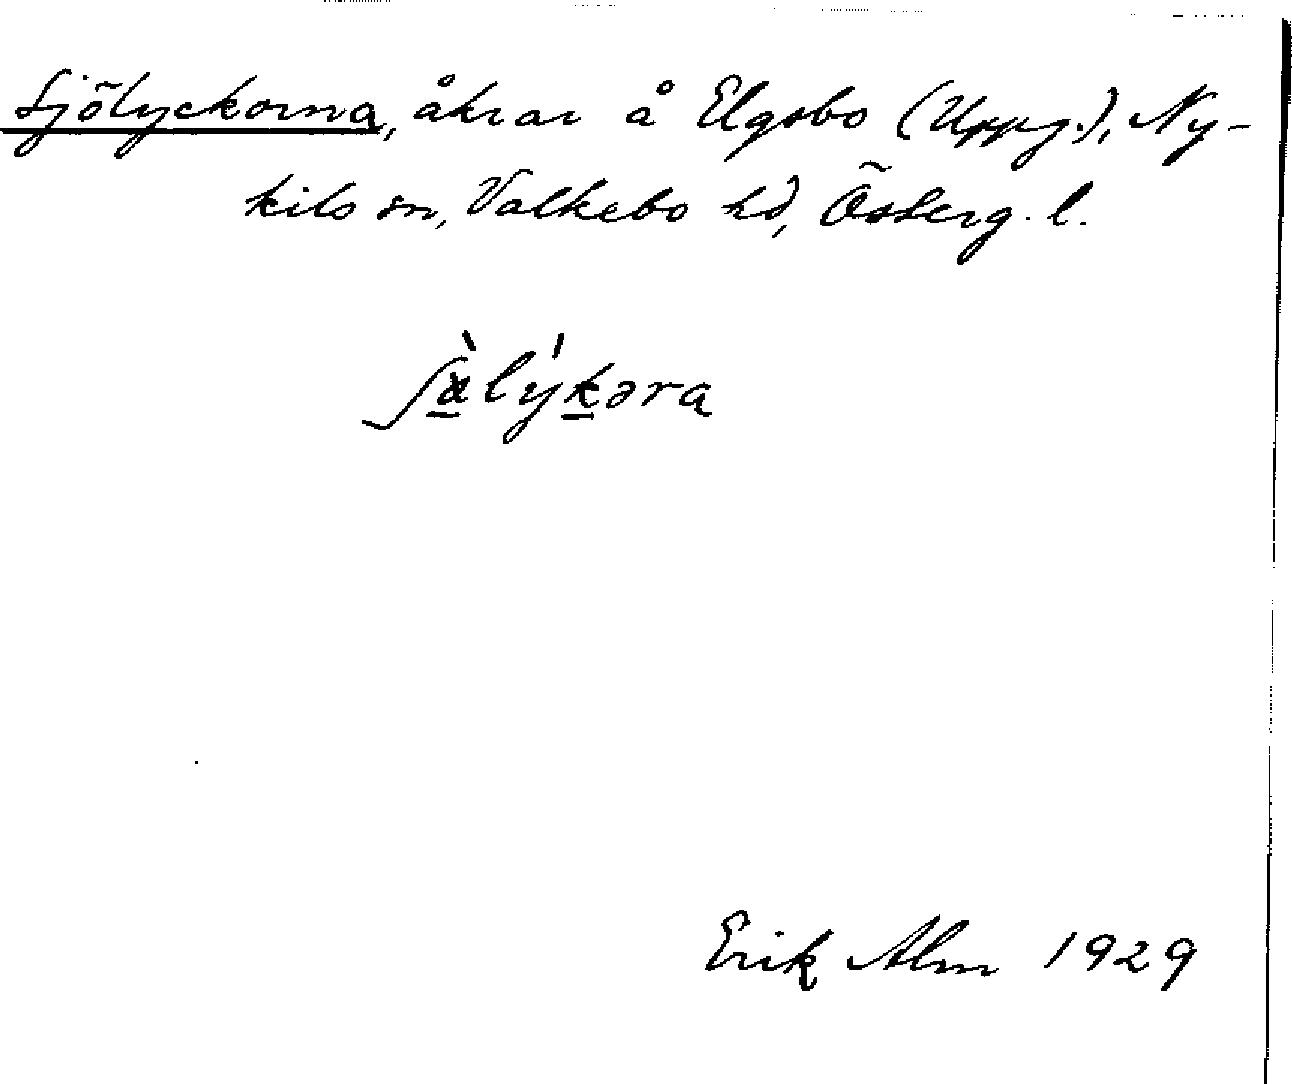 Sjölyckorna, åkrar å Elgsbo (Uppg.), Ny-
kils sn, Valkebo hd, Österg. l.
Erik Alm 1929